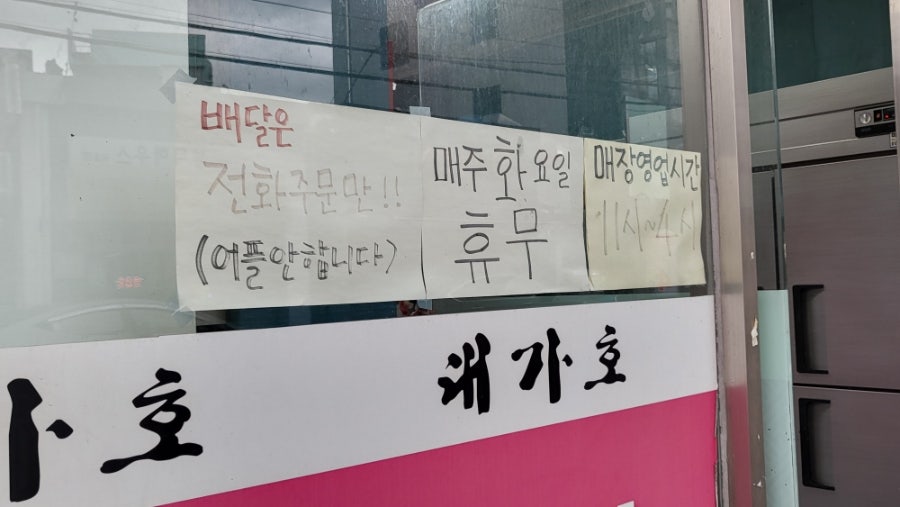 배달은
전화주문만!!
(어플안합니다)
매주화요일
휴무
매장영업시간
11시~4시
가호
래가호